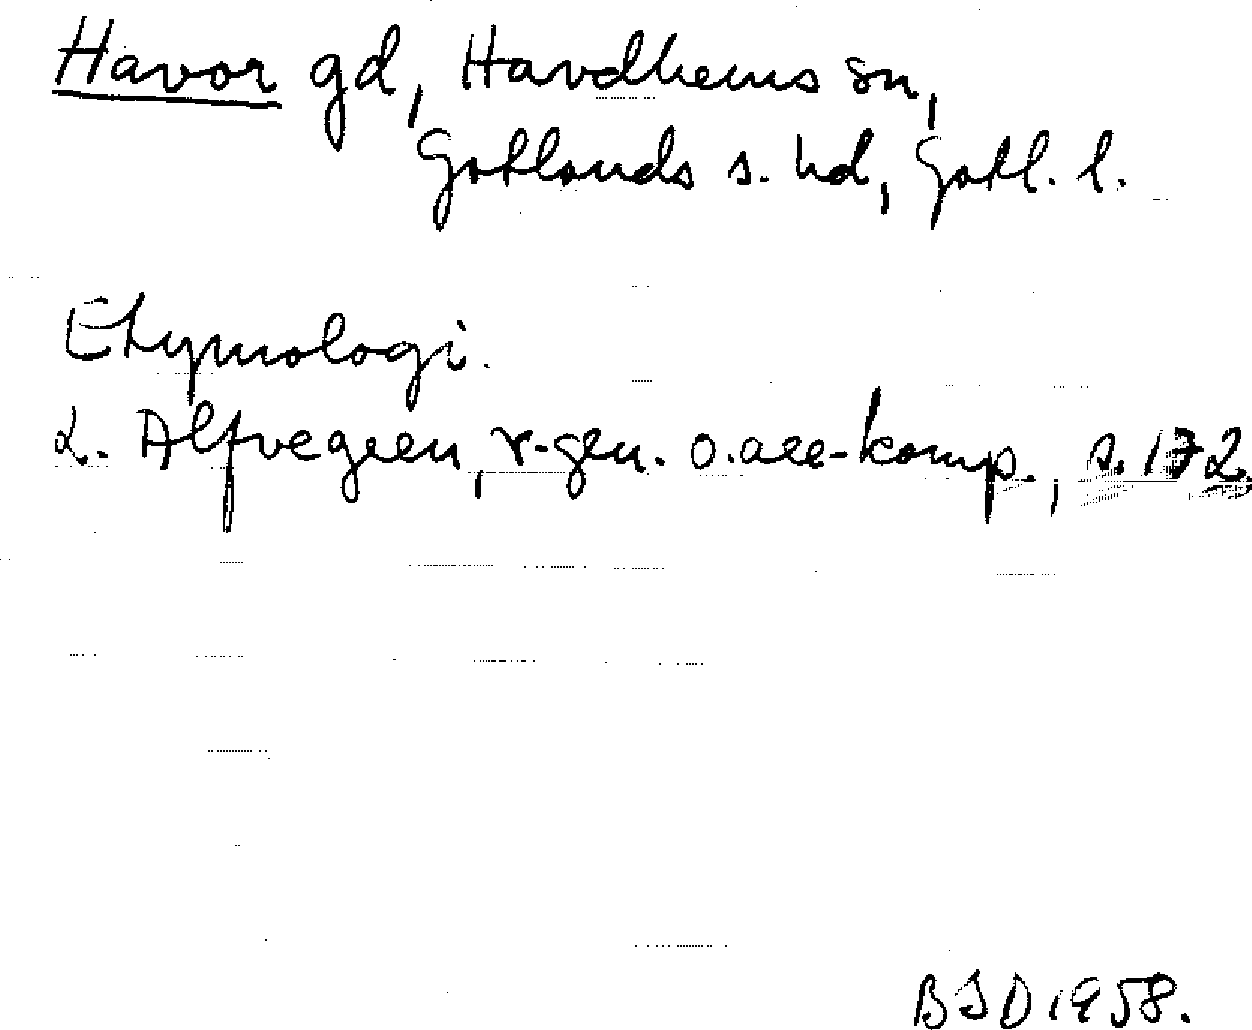 Havor gd, Havdhems sn,
Gotlands s. hd, Gotl. l.
Etymologi.
L. Alfvegren, r-gen. o. are-komp., s. 172
BID 1958.